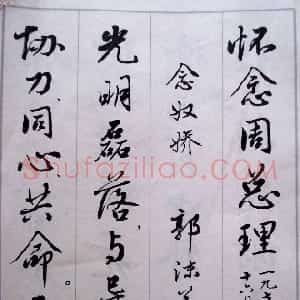 怀念周总理
一九
十六
念奴娇 郭沫
光明磊落，与
协力同心共命。
Shufaziliao.COM